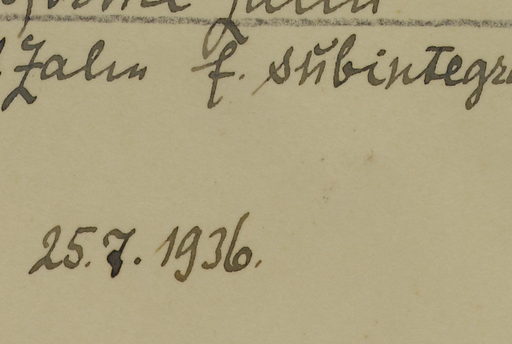 Zahn f. subintegr
25.7.1936.